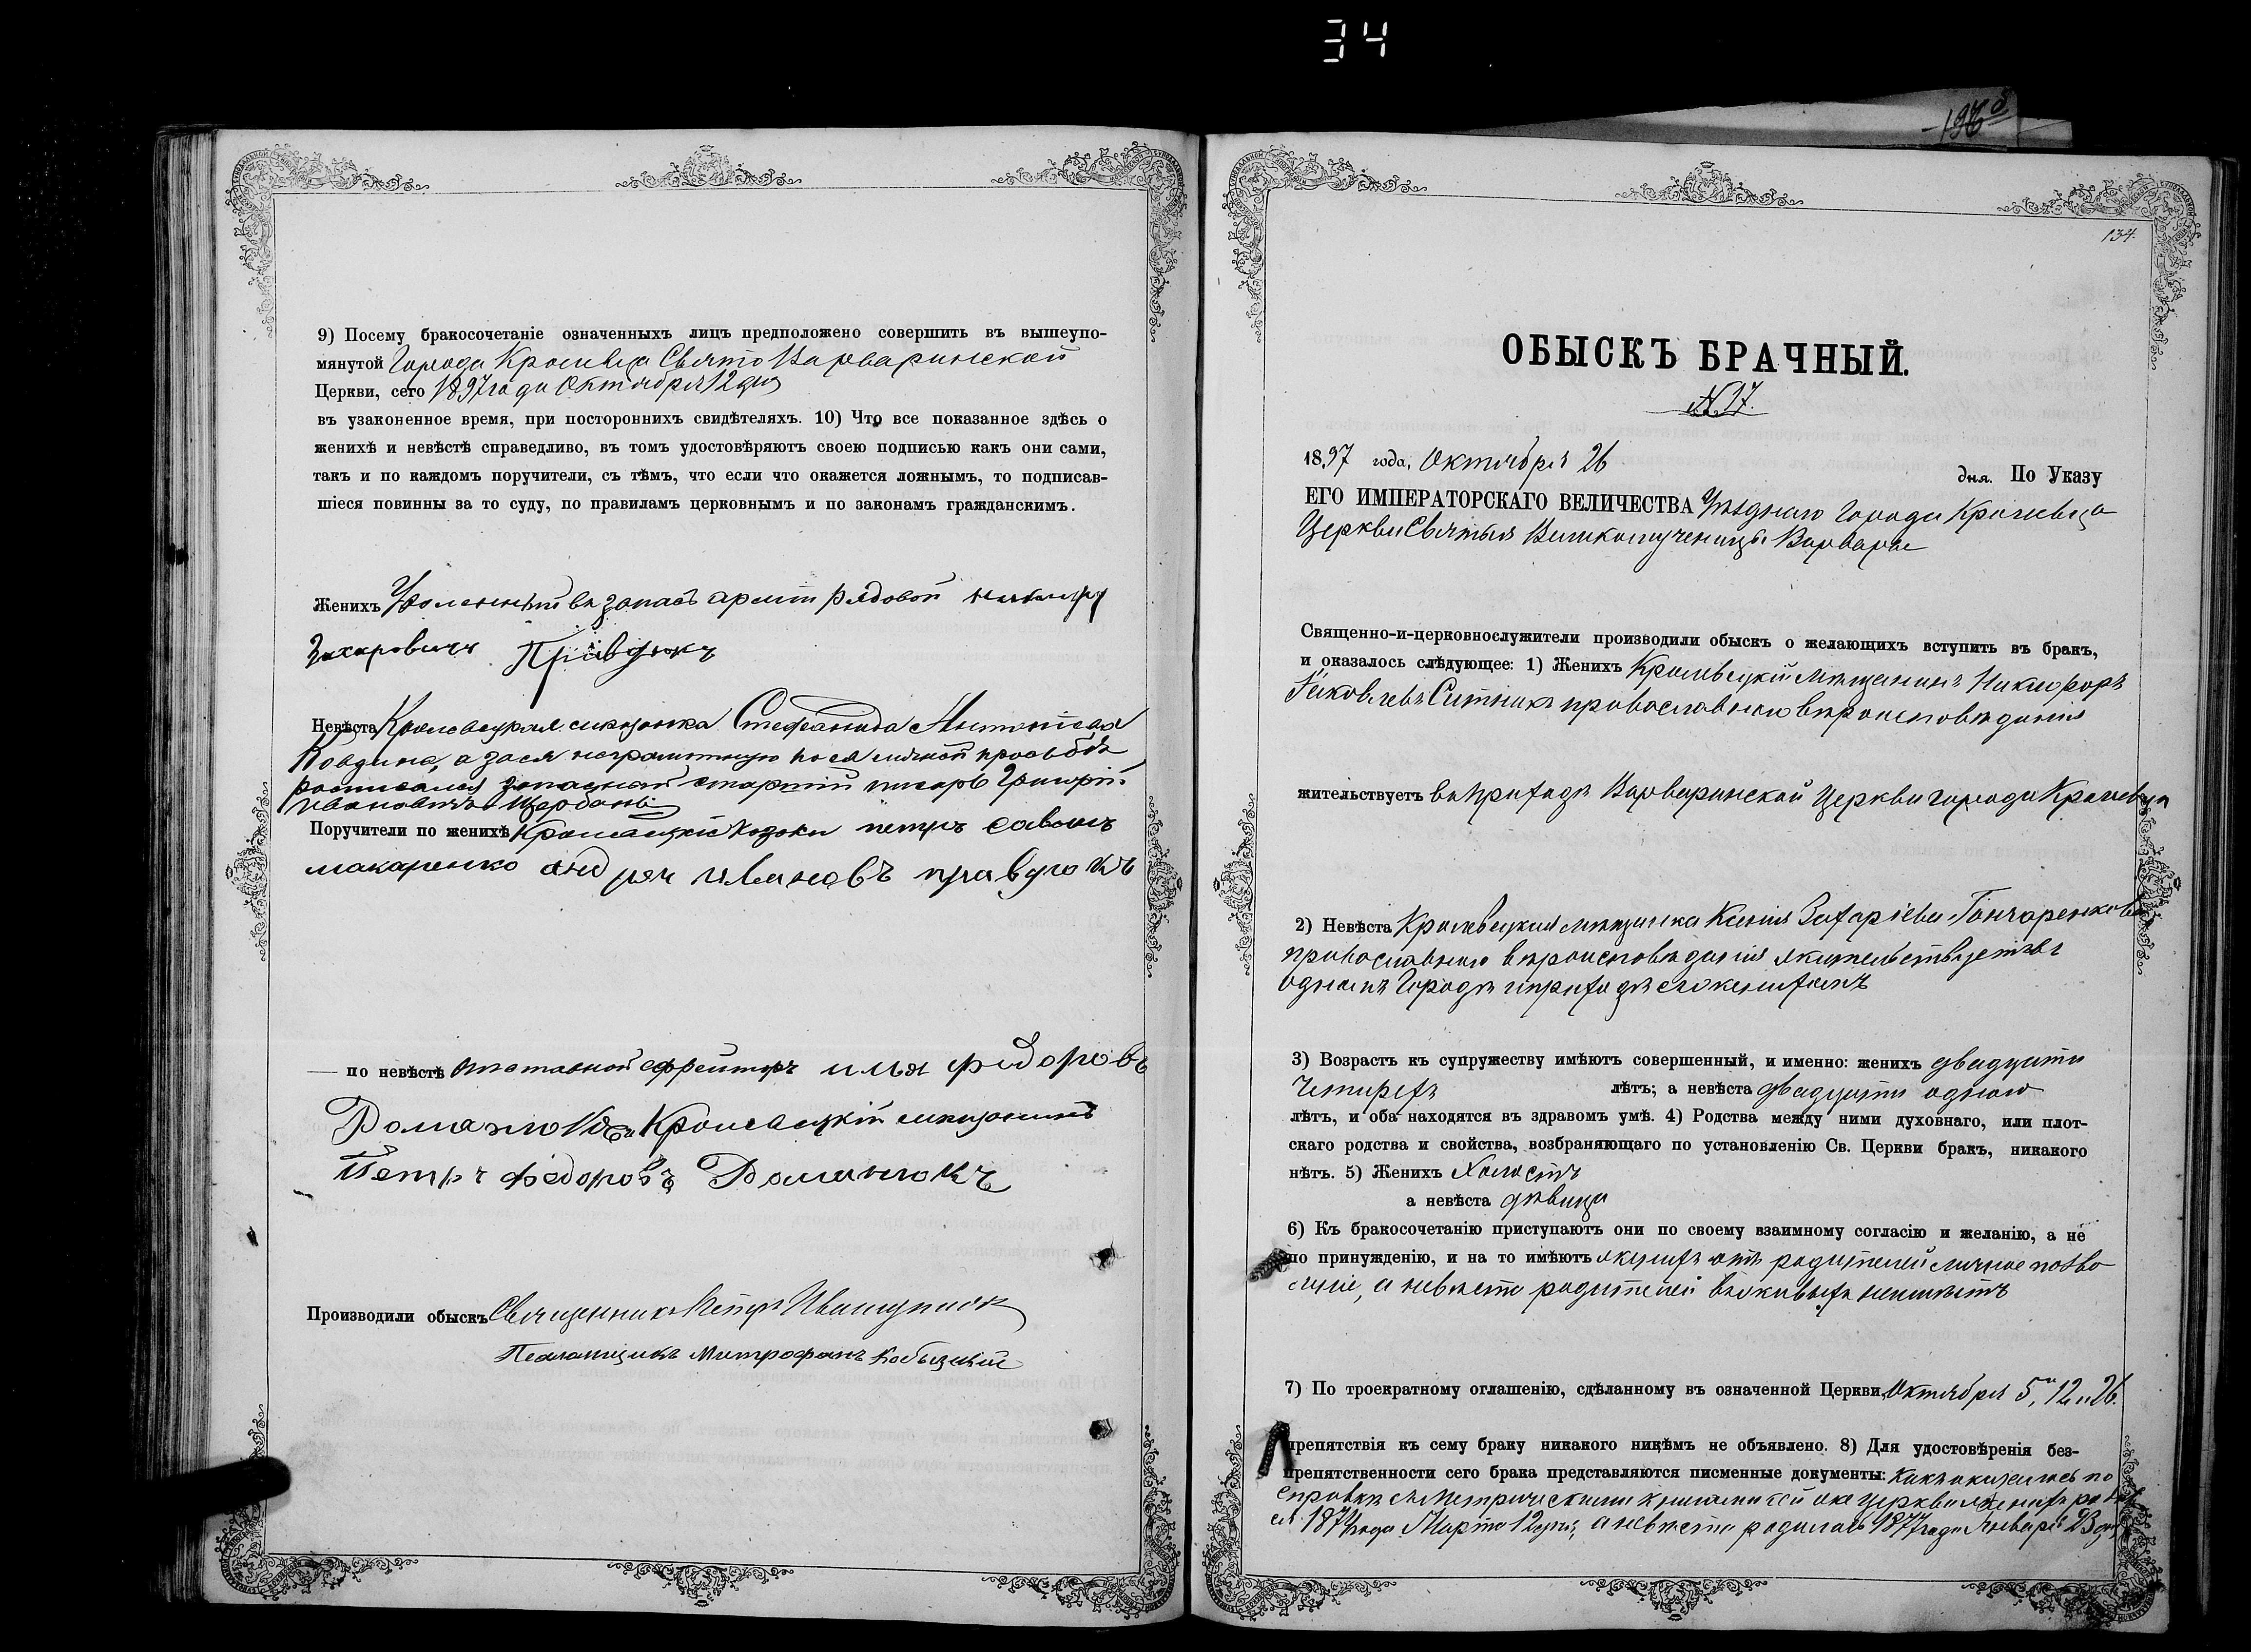 34
134.
9) Посему бракосочетаніе означенныхъ лицъ предположено совершить въ вышеупо-
мянутой Города Кролевца Свято Варваринской
Церкви, сего 1897 года Октября 12 дня
въ узаконенное время, при постороннихъ свидѣтеляхъ. 10) Что все показанное здѣсь о
женихѣ и невѣстѣ справедливо, въ томъ удостовѣряютъ своею подписью какъ они сами,
такъ и по каждомъ поручители, съ тѣмъ, что если что окажется ложнымъ, то подписав-
шіеся повинны за то суду, по правиламъ церковнымъ и по законамъ гражданскимъ.
Женихъ Уволенный въ запасъ арміи рядовой
Захаровичъ Правдюкъ
Невѣста Кролевецкая мѣщанка Стефанида Антонова
а за ея неграмотную по ея личной просьбѣ
росписался запасный старшій писарь Григорій
Ивановичъ Щербань
Поручители по женихѣ Кролевецкіе козаки петръ савичъ
макаренко андрѣй ивановъ правдюкъ
— по невѣстѣ ефрейторъ илья федоровъ
Романюкъ Кролевецкій мѣщанинъ
Петръ федоровъ Романюкъ
Производили обыскъ Священникъ Петръ
Псаломщикъ Митрофанъ Кобыцкій
ОБЫСКЪ БРАЧНЫЙ.
№ 17.
1897 года, Октября 26 дня. По Указу
ЕГО ИМПЕРАТОРСКАГО ВЕЛИЧЕСТВА Уѣзднаго Города Кролевца
Церкви Святыя Великомученицы Варвары
Священно-и-церковнослужители производили обыскъ о желающихъ вступить въ бракъ,
и оказалось слѣдующее: 1) Женихъ Кролевецкій мѣщанинъ Никифоръ
Іаковлевъ Ситникъ православнаго вѣроисповѣданія
жительствуетъ въ приходѣ Варваринской Церкви города Кролевца
2) Невѣста Кролевецкая мѣщанка Ксенія Захаріева Гончаренкова
православнаго вѣроисповѣданія жительствуетъ въ
одномъ Городѣ и приходѣ съ женихомъ
3) Возрастъ къ супружеству имѣютъ совершенный, и именно: женихъ двадцати
четырехъ лѣтъ; а невѣста двадцати одного
лѣтъ, и оба находятся въ здравомъ умѣ. 4) Родства между ними духовнаго, или плот-
скаго родства и свойства, возбраняющаго по установленію Св. Церкви бракъ, никакого
нѣтъ. 5) Женихъ холостъ
а невѣста дѣвица
6) Къ бракосочетанію приступаютъ они по своему взаимному согласію и желанію, а не
по принужденію, и на то имѣютъ женихъ отъ родителей личное позво
леніе, а невѣста родителей въ живыхъ неимѣетъ
7) По троекратному оглашенію, сдѣланному въ означенной Церкви, Октября 5, 12 и 26.
препятствія къ сему браку никакого никѣмъ не объявлено. 8) Для удостовѣренія без-
препятственности сего брака представляются писменные документы: Какъ оказалось по
справкѣ съ Метрическими книгами сей же церкви женихъ родил
ся 1874 года Марта 12 дня, а невѣста родилась 1877 года Января 23 дня